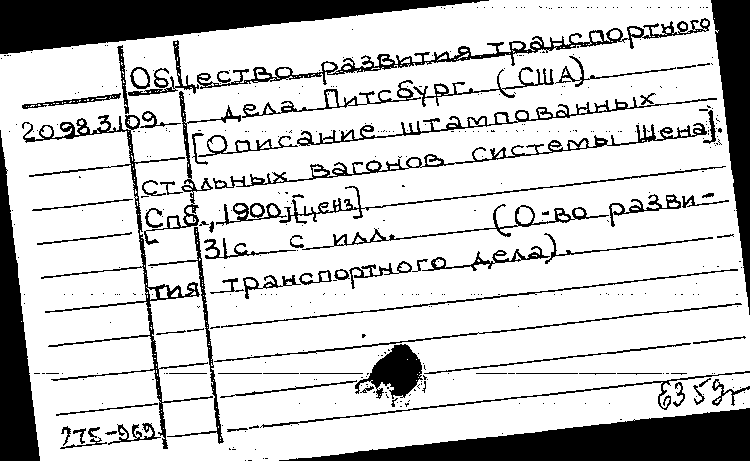 Общество развития транспортного
дела. Питсбург. (США).
2098.3.109.
[Описание штампованных
стальных вагонов системы Шена].
Спб., 1900, [ценз].
31с. с илл. (О-во разви-
тия транспортного дела).
775-969